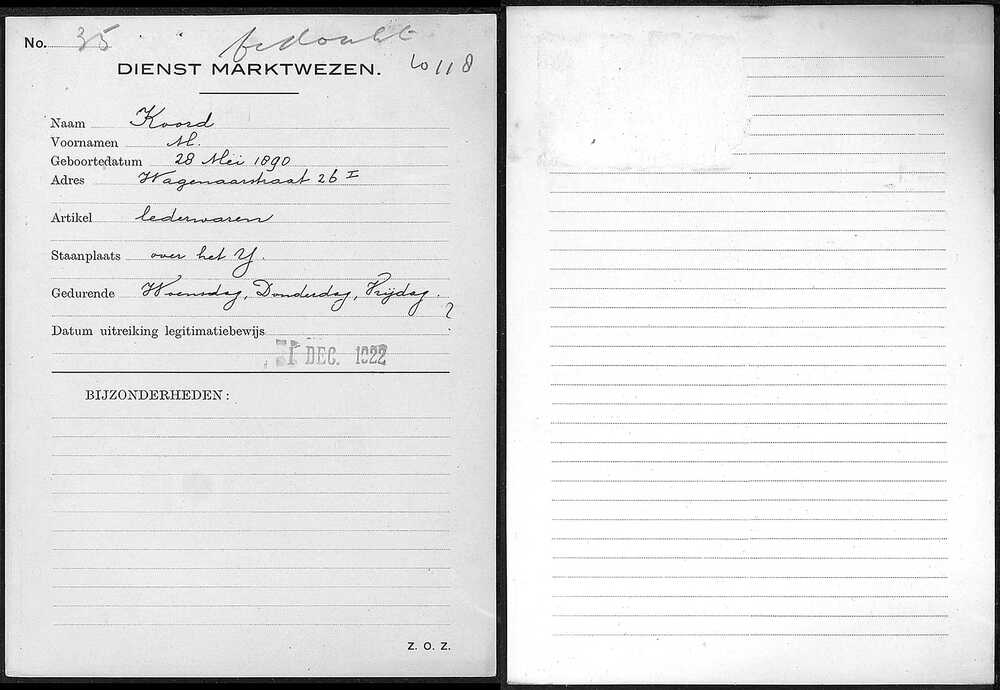 No. 35 bedankt
DIENST MARKTWEZEN. 10118
Naam Koord
Voornamen M.
Geboortedatum 28 Mei 1890
Adres Wagenaarstraat 26 I
Artikel lederwaren
Staanplaats over het Y.
Gedurende Woensdag, Donderdag, Vrijdag. ?
Datum uitreiking legitimatiebewijs
1 DEC. 1922
BIJZONDERHEDEN:
Z. O. Z.